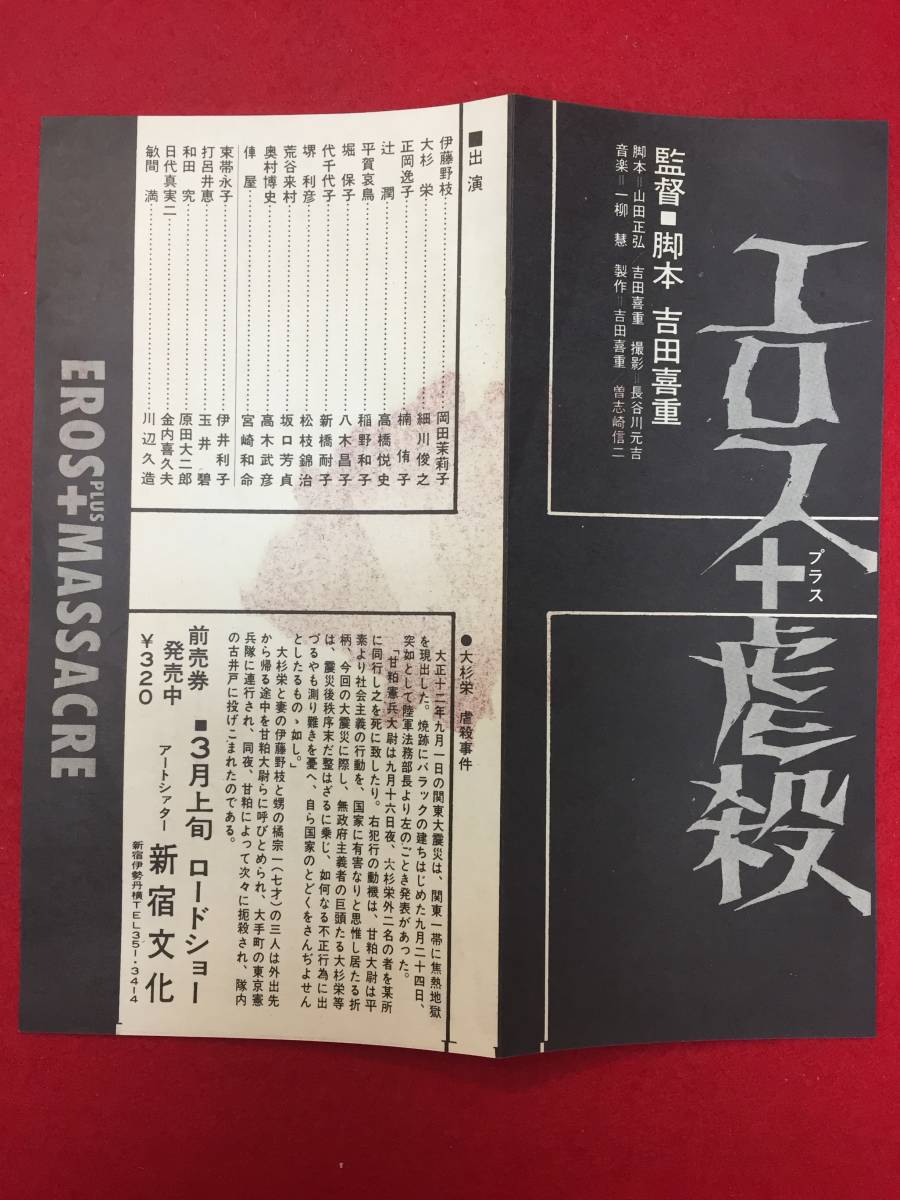 エロス+虐殺
プラス
監督■脚本 吉田喜重
脚本=山田正弘/吉田喜重 撮影=長谷川元吉
音楽=一柳 慧 製作=吉田喜重/曽志崎信二
■出演
伊藤野枝………岡田茉莉子
大杉 栄………細川俊之
正岡逸子………楠 侑子
辻 潤………高橋悦史
平賀哀鳥………稲野和子
堀 保子………八木昌子
代千代子………新橋耐子
堺 利彦………松枝錦治
荒谷来村………坂口芳貞
奥村博史………高木武彦
俥 屋………宮崎和命
束帯永子………伊井利子
打呂井恵………玉井 碧
和田 究………原田大二郎
日代真実二………金内喜久夫
敏間 満………川辺久造
●大杉栄 虐殺事件
大正十二年九月一日の関東大震災は、関東一帯に焦熱地獄
を現出した。焼跡にバラックの建ちはじめた九月二十四日、
突如として陸軍法務部長より左のごとき発表があった。
「甘粕憲兵大尉は九月十六日夜、大杉栄外二名の者を某所
に同行し之を死に致したり。右犯行の動機は、甘粕大尉は平
素より社会主義の行動を、国家に有害なりと思惟し居たる折
柄、今回の大震災に際し、無政府主義者の巨頭たる大杉栄等
は、震災後秩序未だ整はざるに乗じ、如何なる不正行為に出
づるやも測り難きを憂へ、自ら国家のとどくをさんぢよせん
としたるものゝ如し。」
大杉栄と妻の伊藤野枝と甥の橘宗一(七才)の三人は外出先
から帰る途中を甘粕大尉らに呼びとめられ、大手町の東京憲
兵隊に連行され、同夜、甘粕によって次々に扼殺され、隊内
の古井戸に投げこまれたのである。
前売券
発売中
¥320
■3月上旬 ロードショー
アートシアター 新宿文化
新宿伊勢丹横TEL351-3414
EROS+MASSACRE
PLUS